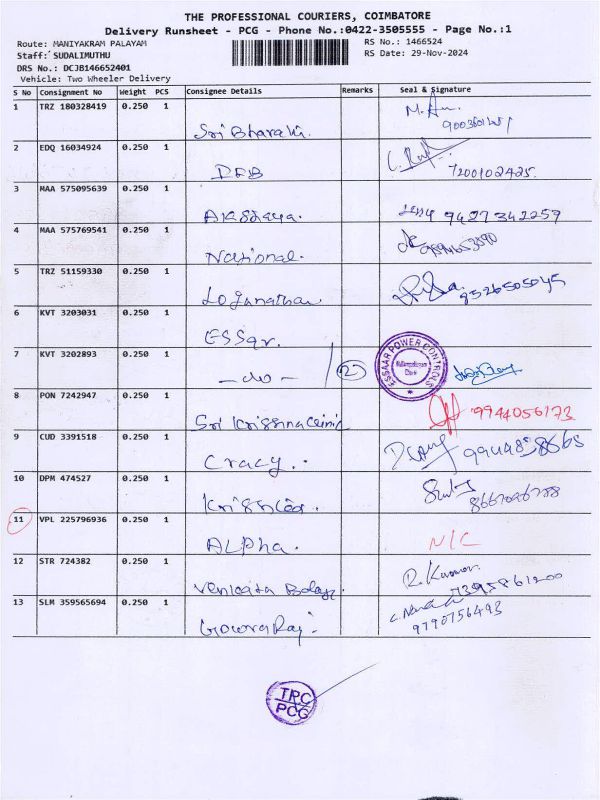 THE PROFESSIONAL COURIERS, COIMBATORE
Delivery Runsheet - PCG - Phone No.:0422-3505555 - Page No.:1
Route: MANIYAKRAM PALAYAM RS No.: 1466524
Staff: SUDALIMUTHU RS Date: 29-Nov-2024
DRS No.: DCJB146652401
Vehicle: Two Wheeler Delivery
S No Consignment No Weight PCS Consignee Details Remarks Seal & Signature
1 TRZ 180328419 0.250 1
Sri Bharathi.
2 EDQ 16034924 0.250 1
DEB 7200102425.
3 MAA 575095639 0.250 1
Akshaya. 9427342259
4 MAA 575769541 0.250 1
National.
5 TRZ 51159330 0.250 1
Loganathan 9526505045
6 KVT 3203031 0.250 1
ESSar.
7 KVT 3202893 0.250 1
- do - 2 ESSAAR POWER CONTROLS
8 PON 7242947 0.250 1
Sri Krishna Clinic 9944056173
9 CUD 3391518 0.250 1
Cracy.
10 DPM 474527 0.250 1
11 VPL 225796936 0.250 1
ALPha. N/C
12 STR 724382 0.250 1 R. Kumar
Venkata Balaji 7395861200
13 SLM 359565694 0.250 1
GowraRaj. 9790756493
TRC
PCG